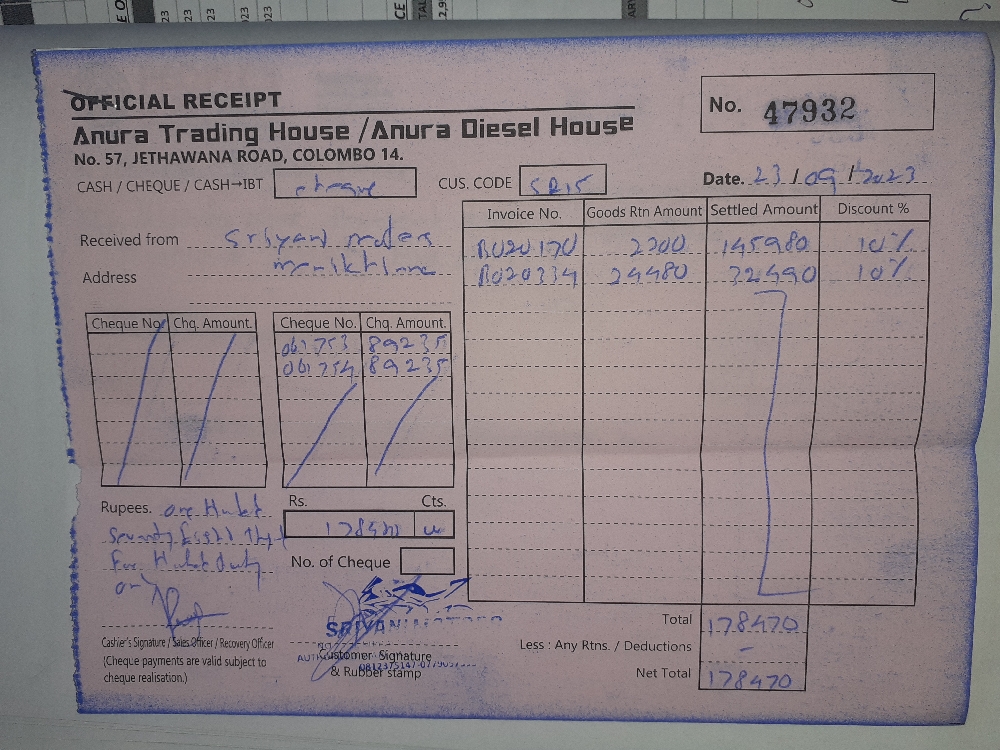 OFFICIAL RECEIPT
No. 47932
Anura Trading House /Anura Diesel House
No. 57, JETHAWANA ROAD, COLOMBO 14.
CASH / CHEQUE / CASH→IBT cheque CUS. CODE SR15 Date. 23 / 09 / 2023
Invoice No. Goods Rtn Amount Settled Amount Discount %
Received from Sriyan
B020170 2200 145980 10%
Address
B020334 24480 32490 10%
Cheque No. Chq. Amount. Cheque No. Chq. Amount.
061753 89235
061754 89235
Rupees. one
Rs. Cts.
No. of Cheque
Total 178470
Less : Any Rtns. / Deductions -
Net Total 178470
SRIYAN MOTORS
Cashier's Signature / Sales Officer / Recovery Officer
Customer Signature
& Rubber stamp
(Cheque payments are valid subject to
cheque realisation.)